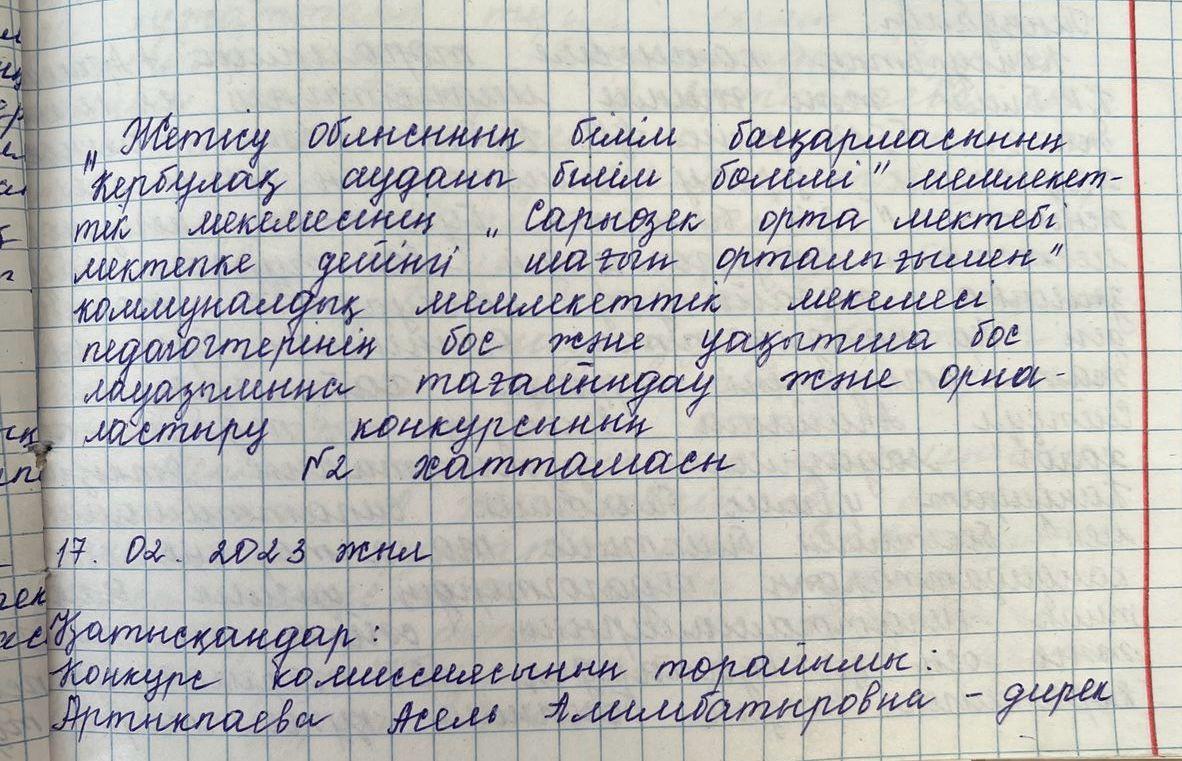 „Жетісу облысының білім басқармасының
Кербұлақ ауданы білім бөлімі" мемлекет-
тік мекемесінің „Сарыөзек орта мектебі
мектепке дейінгі шағын орталығымен"
коммуналдық мемлекеттік мекемесі
педагогтерінің бос және уақытша бос
лауазымына тағайындау және орна-
ластыру конкурсының
№2 хаттамасы
17. 02. 2023 жыл
Қатысқандар:
Конкурс комиссиясының төрайымы:
Артыкпаева Асель Алимбатыровна - дирек